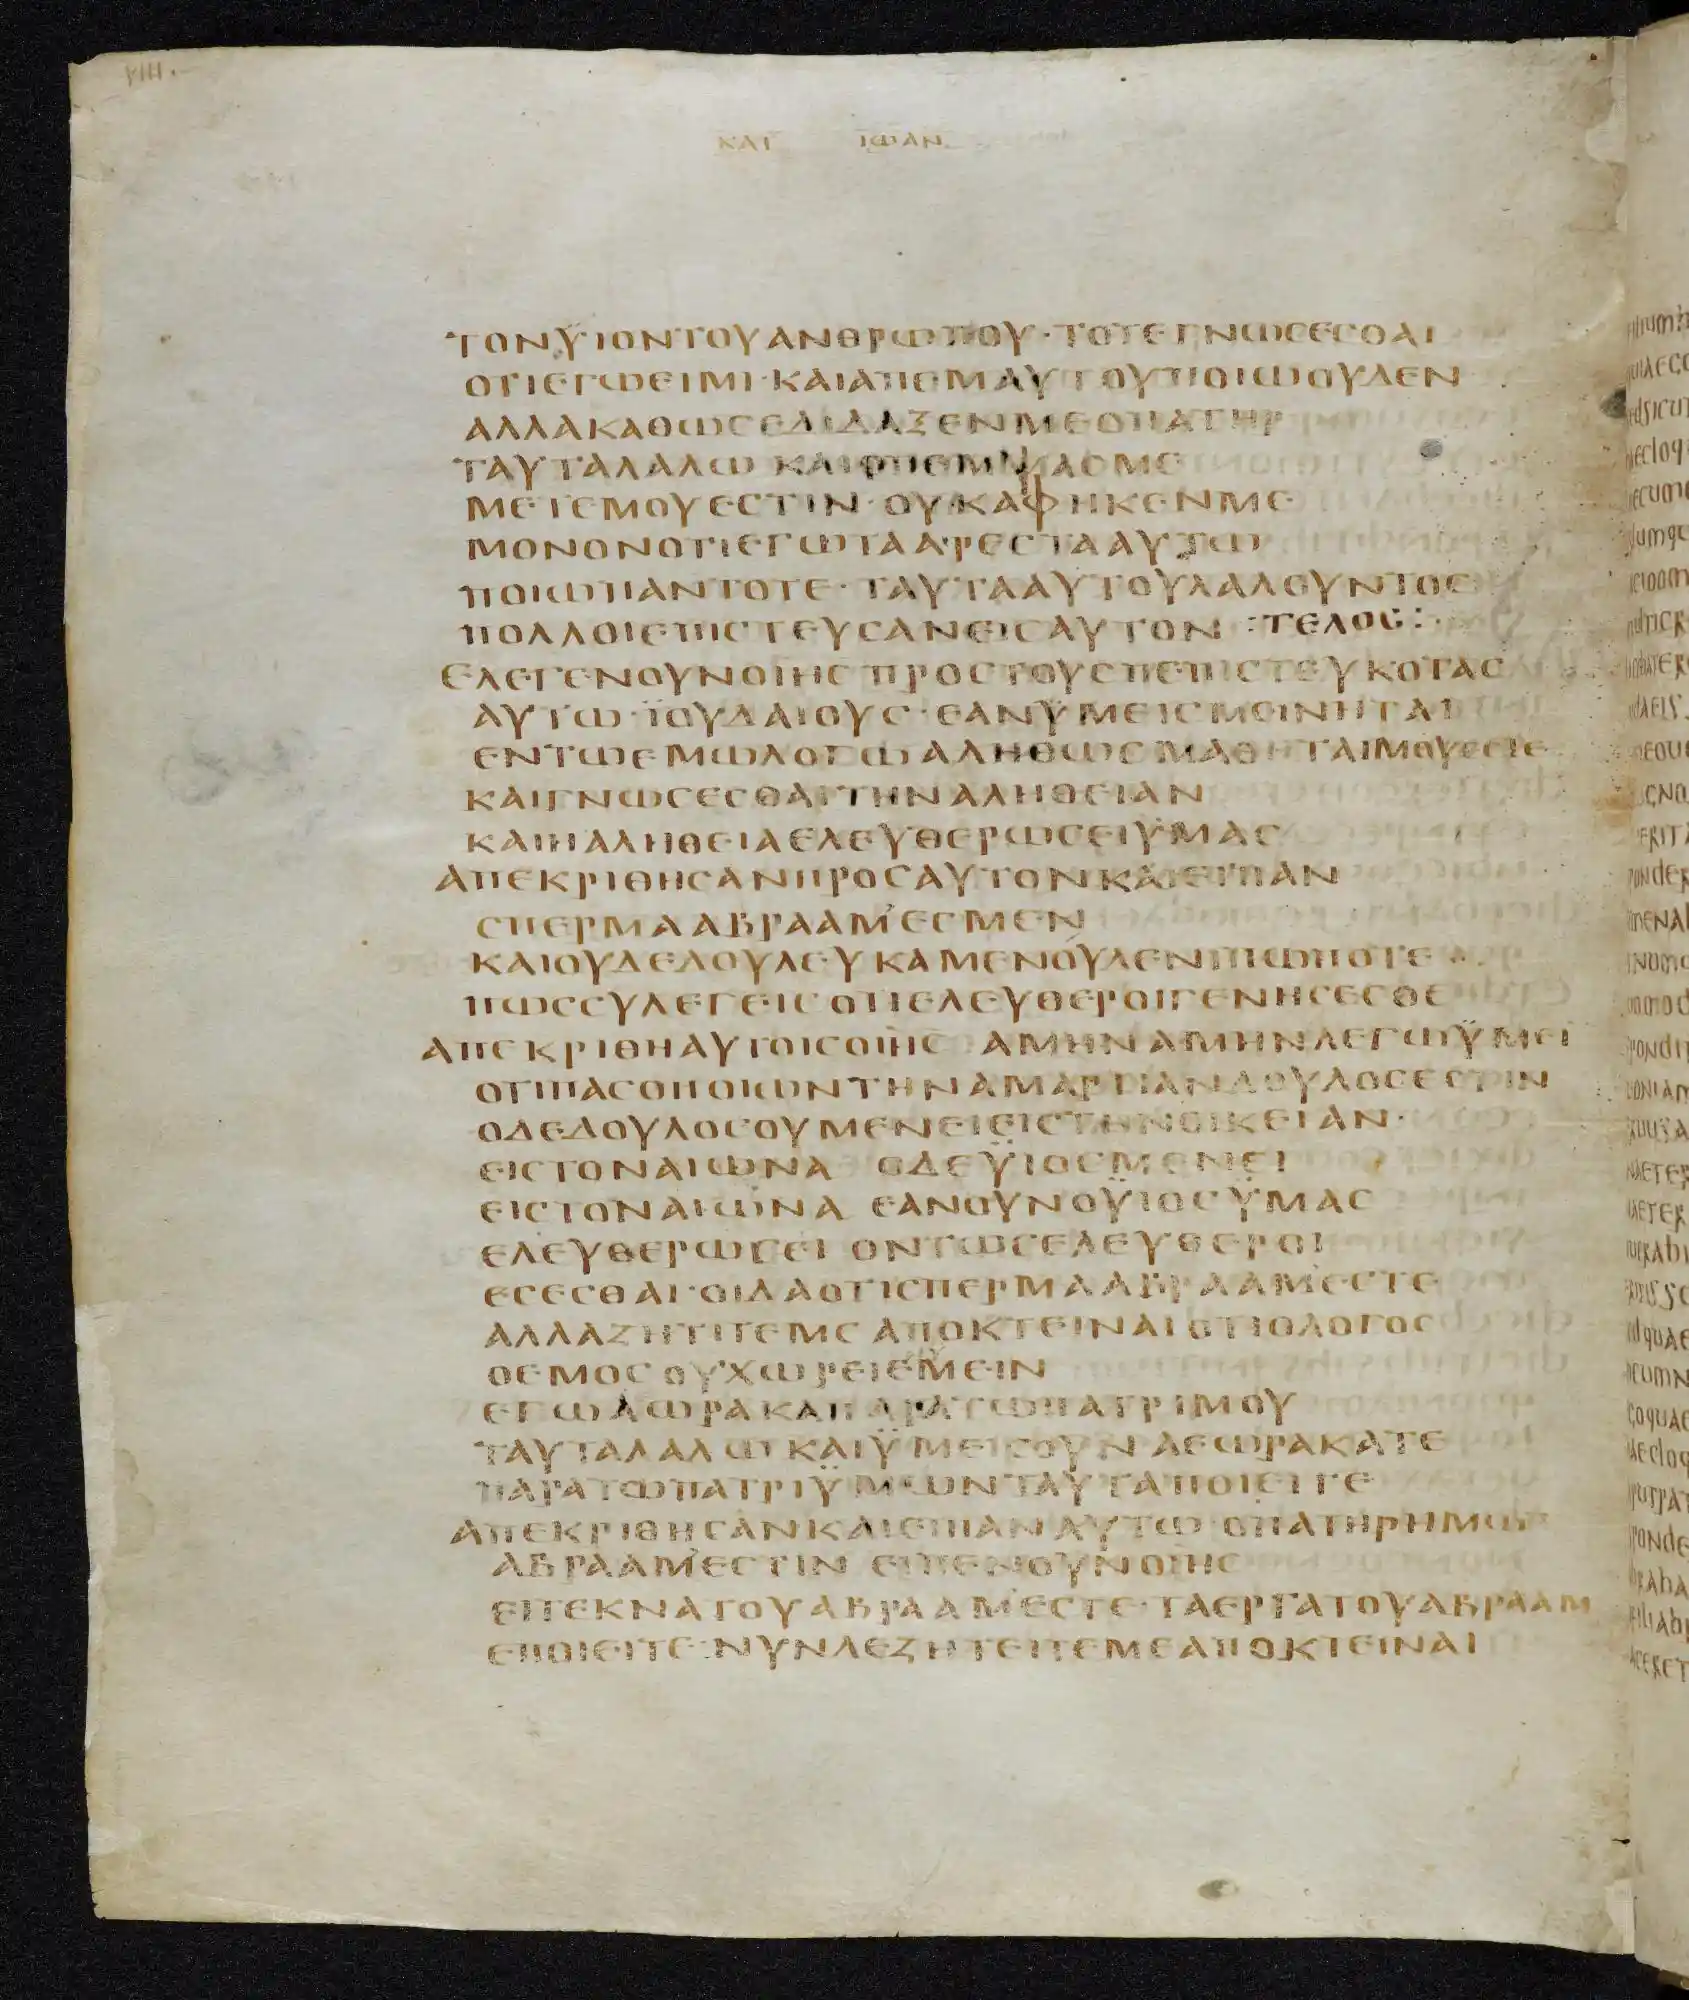 ΚΑΤ ΙΩΑΝ
ΤΟΝΥΙΟΝΤΟΥΑΝΘΡΩΠΟΥ·ΤΟΤΕΓΝΩСΕСΘΑΙ
ΟΤΙΕΓΩΕΙΜΙ·ΚΑΙΑΠΕΜΑΥΤΟΥΠΟΙΩΟΥΔΕΝ
ΑΛΛΑΚΑΘΩСΕΔΙΔΑΞΕΝΜΕΟΠΑΤΗΡ
ΤΑΥΤΑΛΑΛΩ ΚΑΙΟΠΕΜΨΑСΜΕ
ΜΕΤΕΜΟΥΕСΤΙΝ·ΟΥΚΑΦΗΚΕΝΜΕ
ΜΟΝΟΝΟΤΙΕΓΩΤΑΑΡΕСΤΑΑΥΤΩ
ΠΟΙΩΠΑΝΤΟΤΕ·ΤΑΥΤΑΑΥΤΟΥΛΑΛΟΥΝΤΟС
ΠΟΛΛΟΙΕΠΙСΤΕΥСΑΝΕΙСΑΥΤΟΝ :ΤΕΛΟС:
ΕΛΕΓΕΝΟΥΝΟΙΗС ΠΡΟСΤΟΥСΠΕΠΙСΤΕΥΚΟΤΑС
ΑΥΤΩ·ΪΟΥΔΑΙΟΥС·ΕΑΝΫΜΕΙСΜΟΙΝΗΤΑΙ
ΕΝΤΩΕΜΩΛΟΓΩΑΛΗΘΩСΜΑΘΗΤΑΙΜΟΥΕСΤΕ
ΚΑΙΓΝΩСΕСΘΑΙΤΗΝΑΛΗΘΕΙΑΝ
ΚΑΙΗΑΛΗΘΕΙΑΕΛΕΥΘΕΡΩСΕΙΫΜΑС
ΑΠΕΚΡΙΘΗСΑΝΠΡΟСΑΥΤΟΝΚΑΙΕΙΠΑΝ
СΠΕΡΜΑΑΒΡΑΑΜ̓ΕСΜΕΝ
ΚΑΙΟΥΔΕΔΟΥΛΕΥΚΑΜΕΝΟΥΔΕΝΙΠΩΠΟΤΕ
ΠΩССΥΛΕΓΕΙСΟΤΙΕΛΕΥΘΕΡΟΙΓΕΝΗСΕСΘΕ
ΑΠΕΚΡΙΘΗΑΥΤΟΙСΟΙΗС ΑΜΗΝΑΜΗΝΛΕΓΩΫΜΕΙ
ΟΤΙΠΑСΟΠΟΙΩΝΤΗΝΑΜΑΡΤΙΑΝΔΟΥΛΟСΕСΤΙΝ
ΟΔΕΔΟΥΛΟСΟΥΜΕΝΕΙΕΙСΤΗΝΟΙΚΕΙΑΝ·
ΕΙСΤΟΝΑΙΩΝΑ ΟΔΕΫΙΟСΜΕΝΕΙ
ΕΙСΤΟΝΑΙΩΝΑ ΕΑΝΟΥΝΟΫΙΟСΫΜΑС
ΕΛΕΥΘΕΡΩСΕΙ ΟΝΤΩСΕΛΕΥΘΕΡΟΙ
ΕСΕСΘΑΙ·ΟΙΔΑΟΤΙСΠΕΡΜΑΑΒΡΑΑΜ̓ΕСΤΕ
ΑΛΛΑΖΗΤΙΤΕΜΕ ΑΠΟΚΤΕΙΝΑΙΟΤΙΟΛΟΓΟС
ΟΕΜΟСΟΥΧΩΡΕΙΕΜΕΙΝ
ΕΓΩΑΩΡΑΚΑΠΑΡΑΤΩΠΑΤΡΙΜΟΥ
ΤΑΥΤΑΛΑΛΩΚΑΙΫΜΕΙСΟΥΝ ΑΕΩΡΑΚΑΤΕ
ΠΑΡΑΤΩΠΑΤΡΙΫΜΩΝΤΑΥΤΑΠΟΙΕΙΤΕ
ΑΠΕΚΡΙΘΗСΑΝΚΑΙΕΙΠΑΝΑΥΤΩ·ΟΠΑΤΗΡΗΜΩΝ
ΑΒΡΑΑΜ̓ΕСΤΙΝ ΕΙΠΕΝΟΥΝΟΙΗС
ΕΙΤΕΚΝΑΤΟΥΑΒΡΑΑΜ̓ΕСΤΕ·ΤΑΕΡΓΑΤΟΥΑΒΡΑΑΜ
ΕΠΟΙΕΙΤΕ·ΝΥΝΔΕΖΗΤΕΙΤΕΜΕΑΠΟΚΤΕΙΝΑΙ